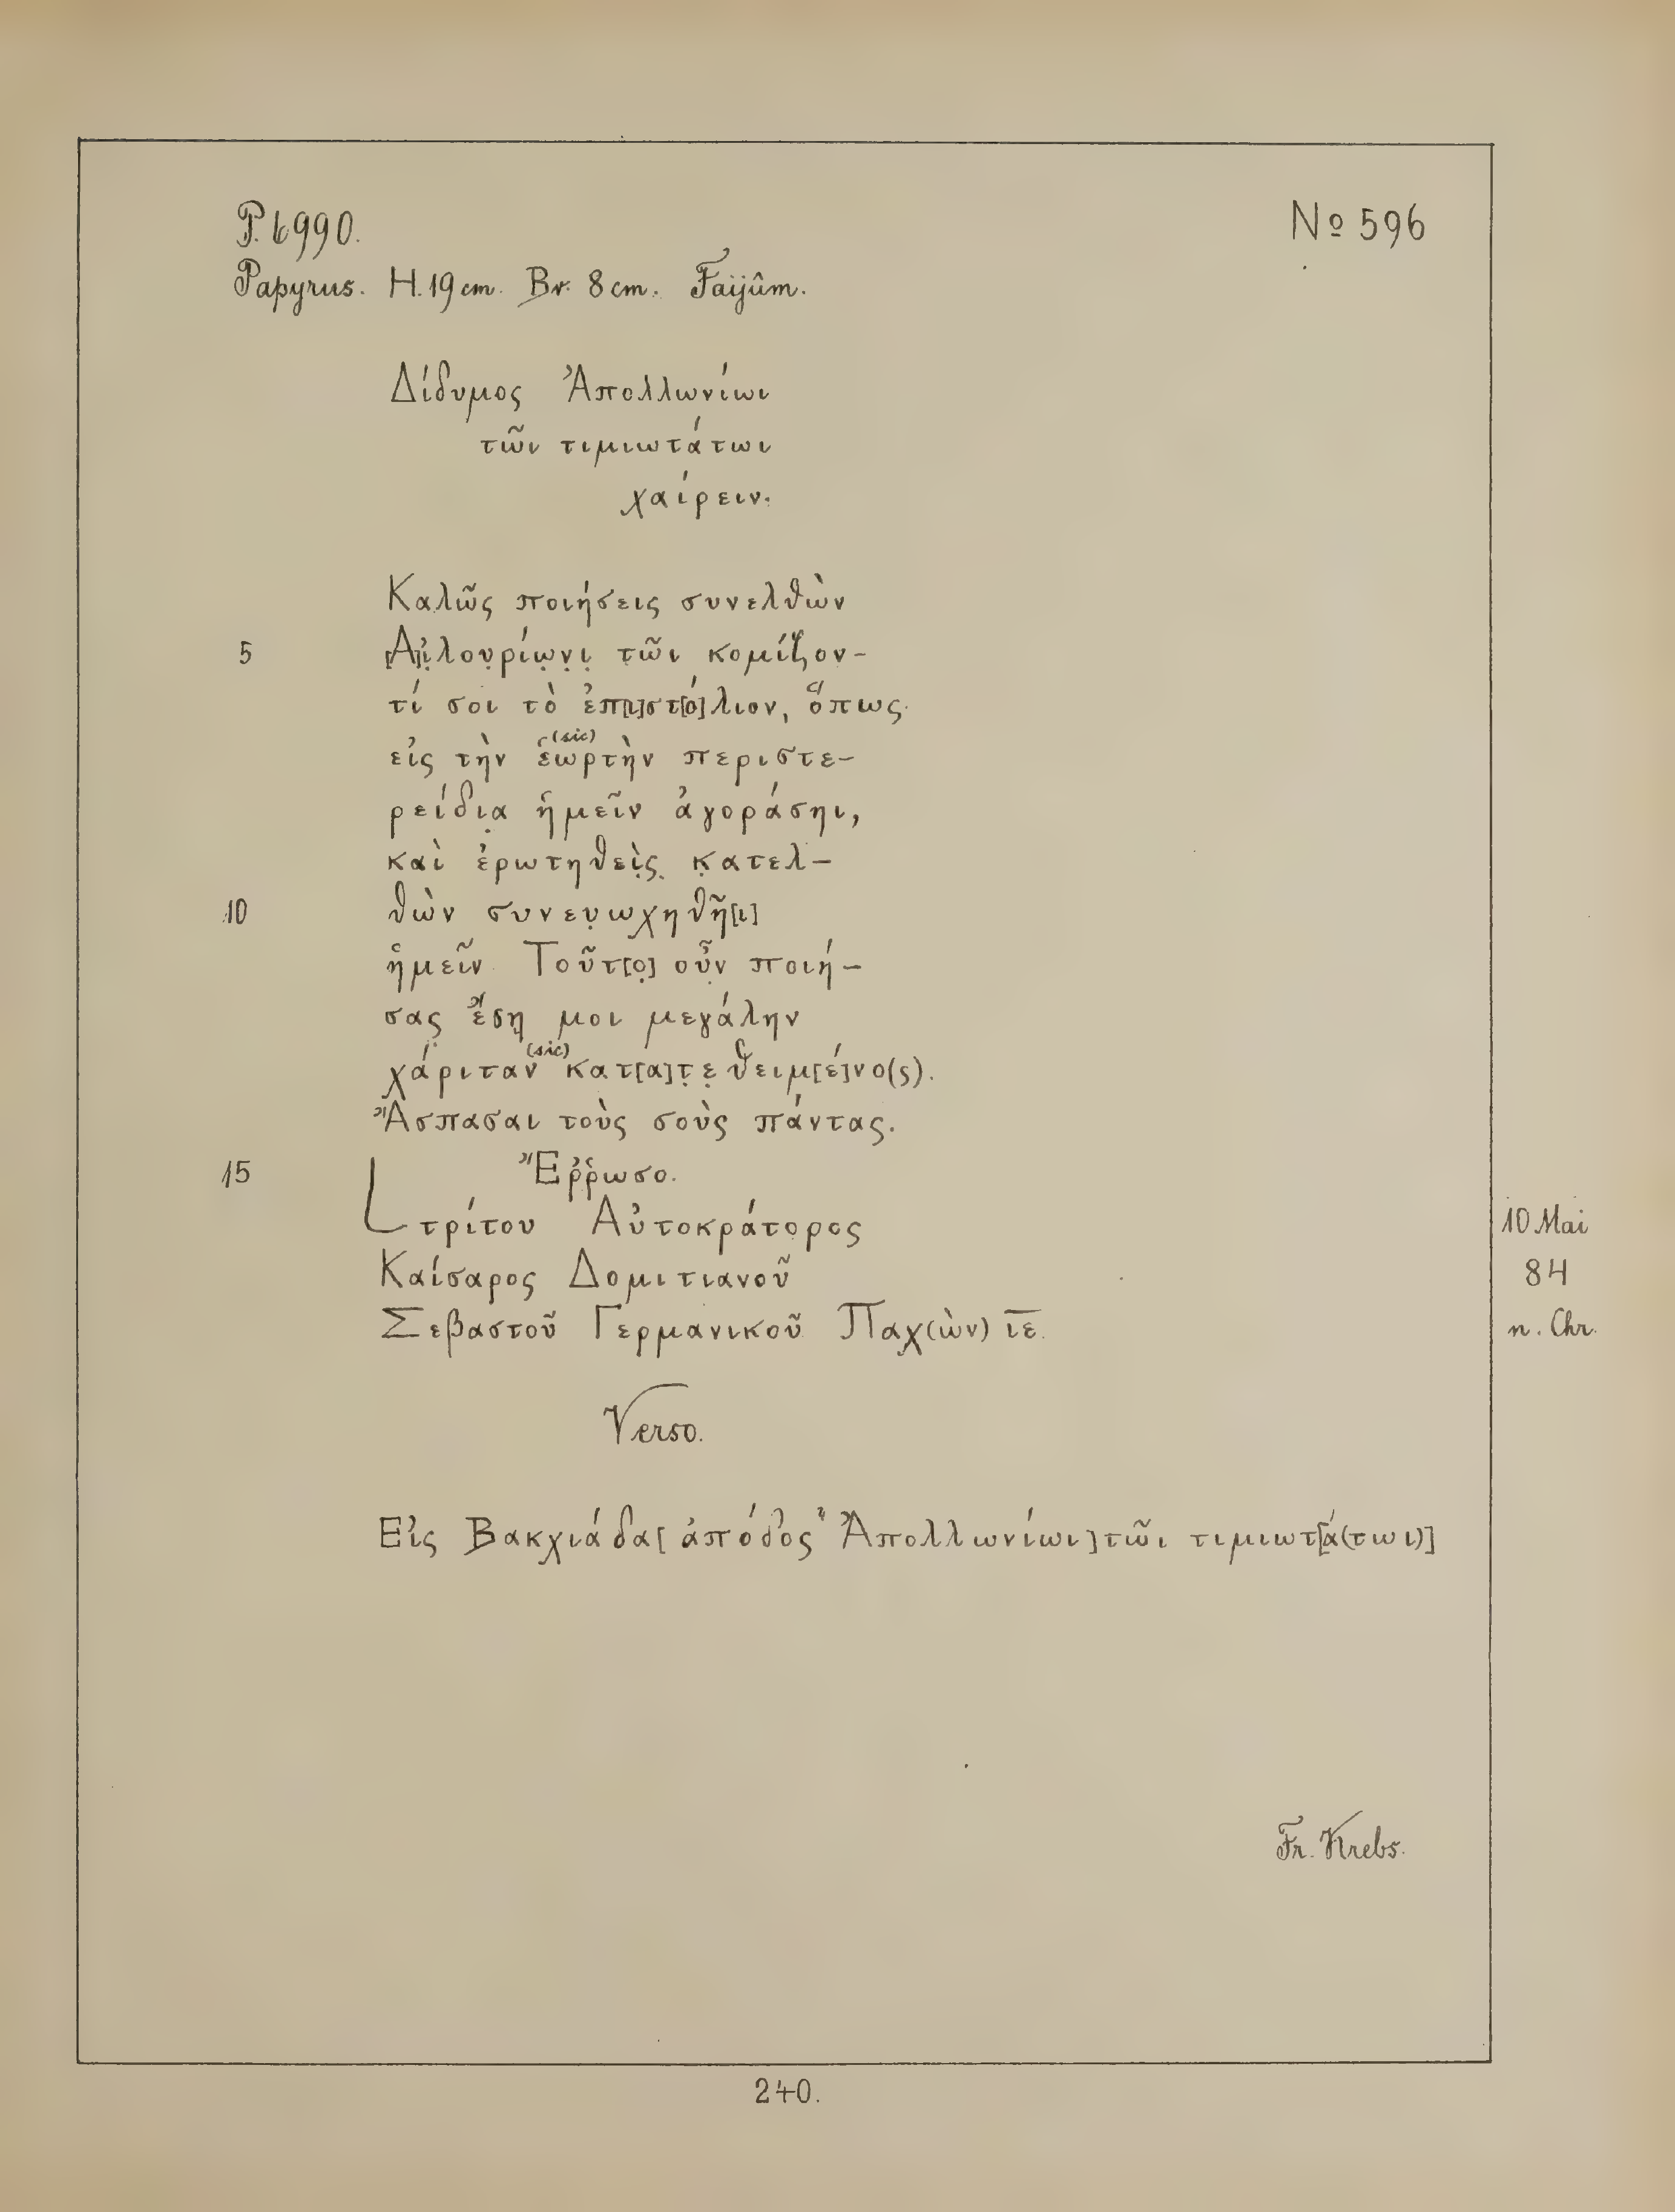 P. 6990.
No 596
Papyrus. H. 19 cm. Br. 8 cm. Faijûm.
Δίδυμος Ἀπολλωνίωι
τῶι τιμιωτάτωι
χαίρειν.
Καλῶς ποιήσεις συνελθὼν
5 [Α]ἰ̣λου̣ρίω̣ν̣ι̣ τ̣ῶι κομίζον-
τί σοι τὸ ἐπ[ι]στ[ό]λιον, ὅπως
εἰς τὴν ἑωρτὴν (sic) περιστε-
ρείδι̣α ἡμεῖν ἀγοράσηι,
καὶ ἐρωτηθεὶ̣ς̣ κ̣ατελ-
10 θὼν συνευ̣ωχηθῆ[ι]
ἡμεῖν Τοῦτ[ο̣] οὖ̣ν ποιή-
σας ἔσῃ μοι μεγάλην
χάριταν (sic) κατ[α]τ̣ε̣θειμ[έ]νο(ς).
Ἄσπασαι τοὺς σοὺς πάντας.
15 Ἔῤῥωσο.
L τρίτου Αὐτοκράτορος 10 Mai
Καίσαρος Δομιτιανοῦ 84
Σεβαστοῦ Γερμανικοῦ Παχ(ὼν) ι̅ε̅ n. Chr.
Verso.
Εἰς Βακχιάδα[ ἀπόδος Ἀπολλωνίωι] τῶι τιμιωτ[ά(τωι)]
Fr. Krebs.
240.